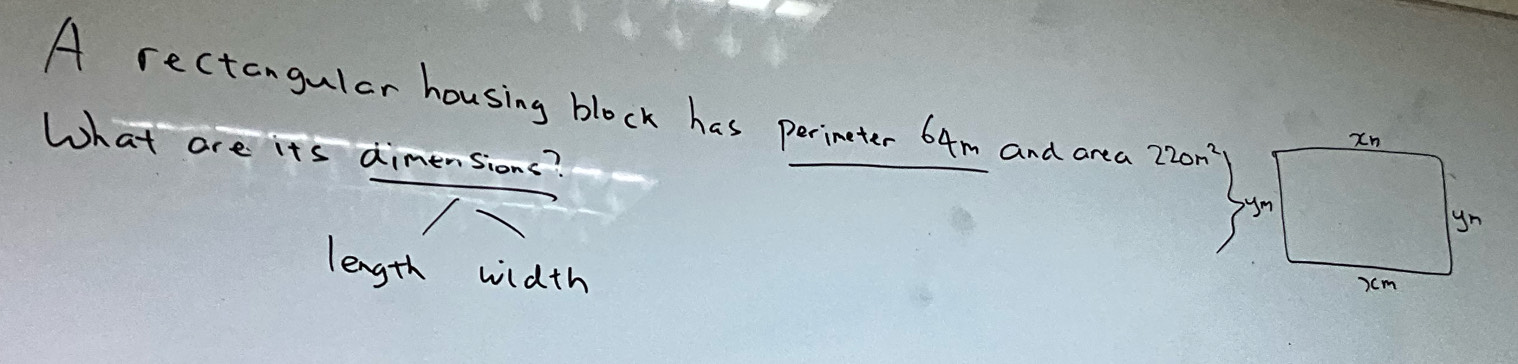 A rectangular housing block has perimeter 64m and area 220m²
What are its dimensions?
length width
xm
ym
ym
xm